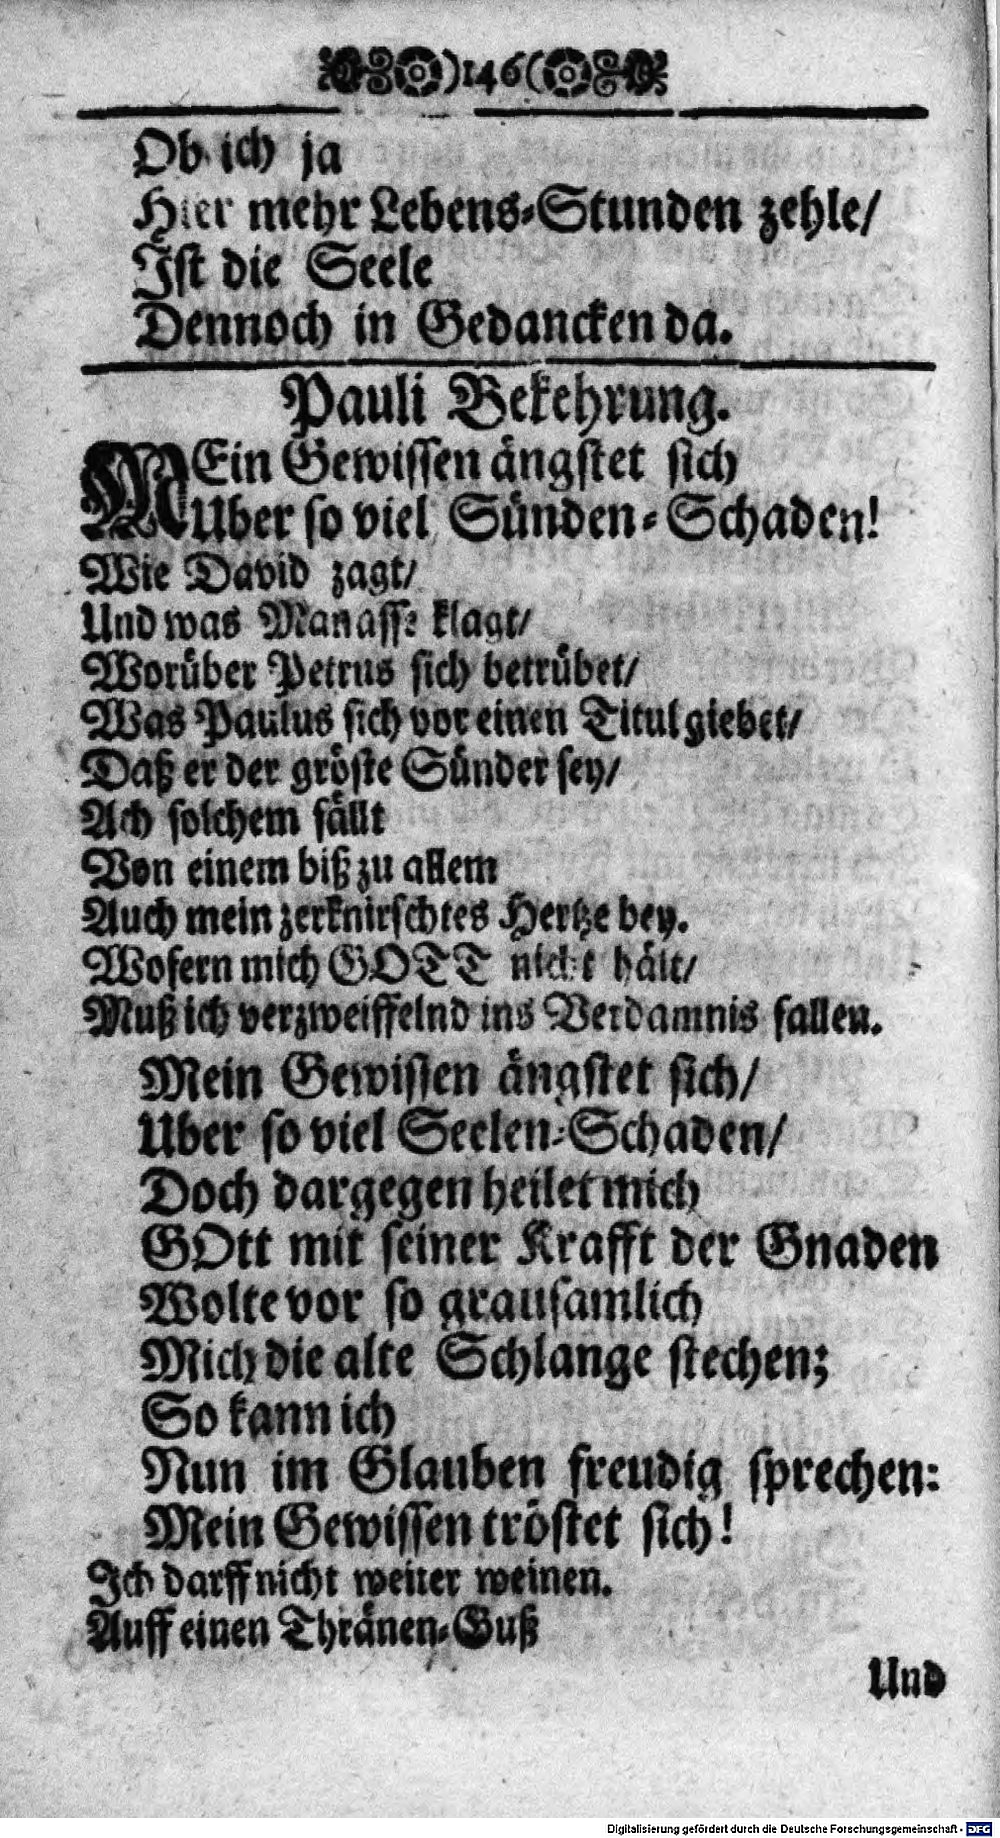 )146(
Ob ich ja
Hier mehr Lebens-Stunden zehle/
Ist die Seele
Dennoch in Gedancken da.
Pauli Bekehrung.
MEin Gewissen ängstet sich
Uber so viel Sünden-Schaden!
Wie David zagt/
Und was Manasse klagt/
Worüber Petrus sich betrübet/
Was Paulus sich vor einen Titul giebet/
Daß er der gröste Sünder sey/
Ach solchem fällt
Von einem biß zu allem
Auch mein zerknirschtes Hertze bey.
Wofern mich GOTT nicht hält/
Muß ich verzweiffelnd ins Verdamnis fallen.
Mein Gewissen ängstet sich/
Uber so viel Seelen-Schaden/
Doch dargegen heilet mich
GOtt mit seiner Krafft der Gnaden
Wolte vor so grausamlich
Mich die alte Schlange stechen;
So kann ich
Nun im Glauben freudig sprechen:
Mein Gewissen tröstet sich!
Ich darff nicht weiter weinen.
Auff einen Thränen-Guß
Und
Digitalisierung gefördert durch die Deutsche Forschungsgemeinschaft - DFG